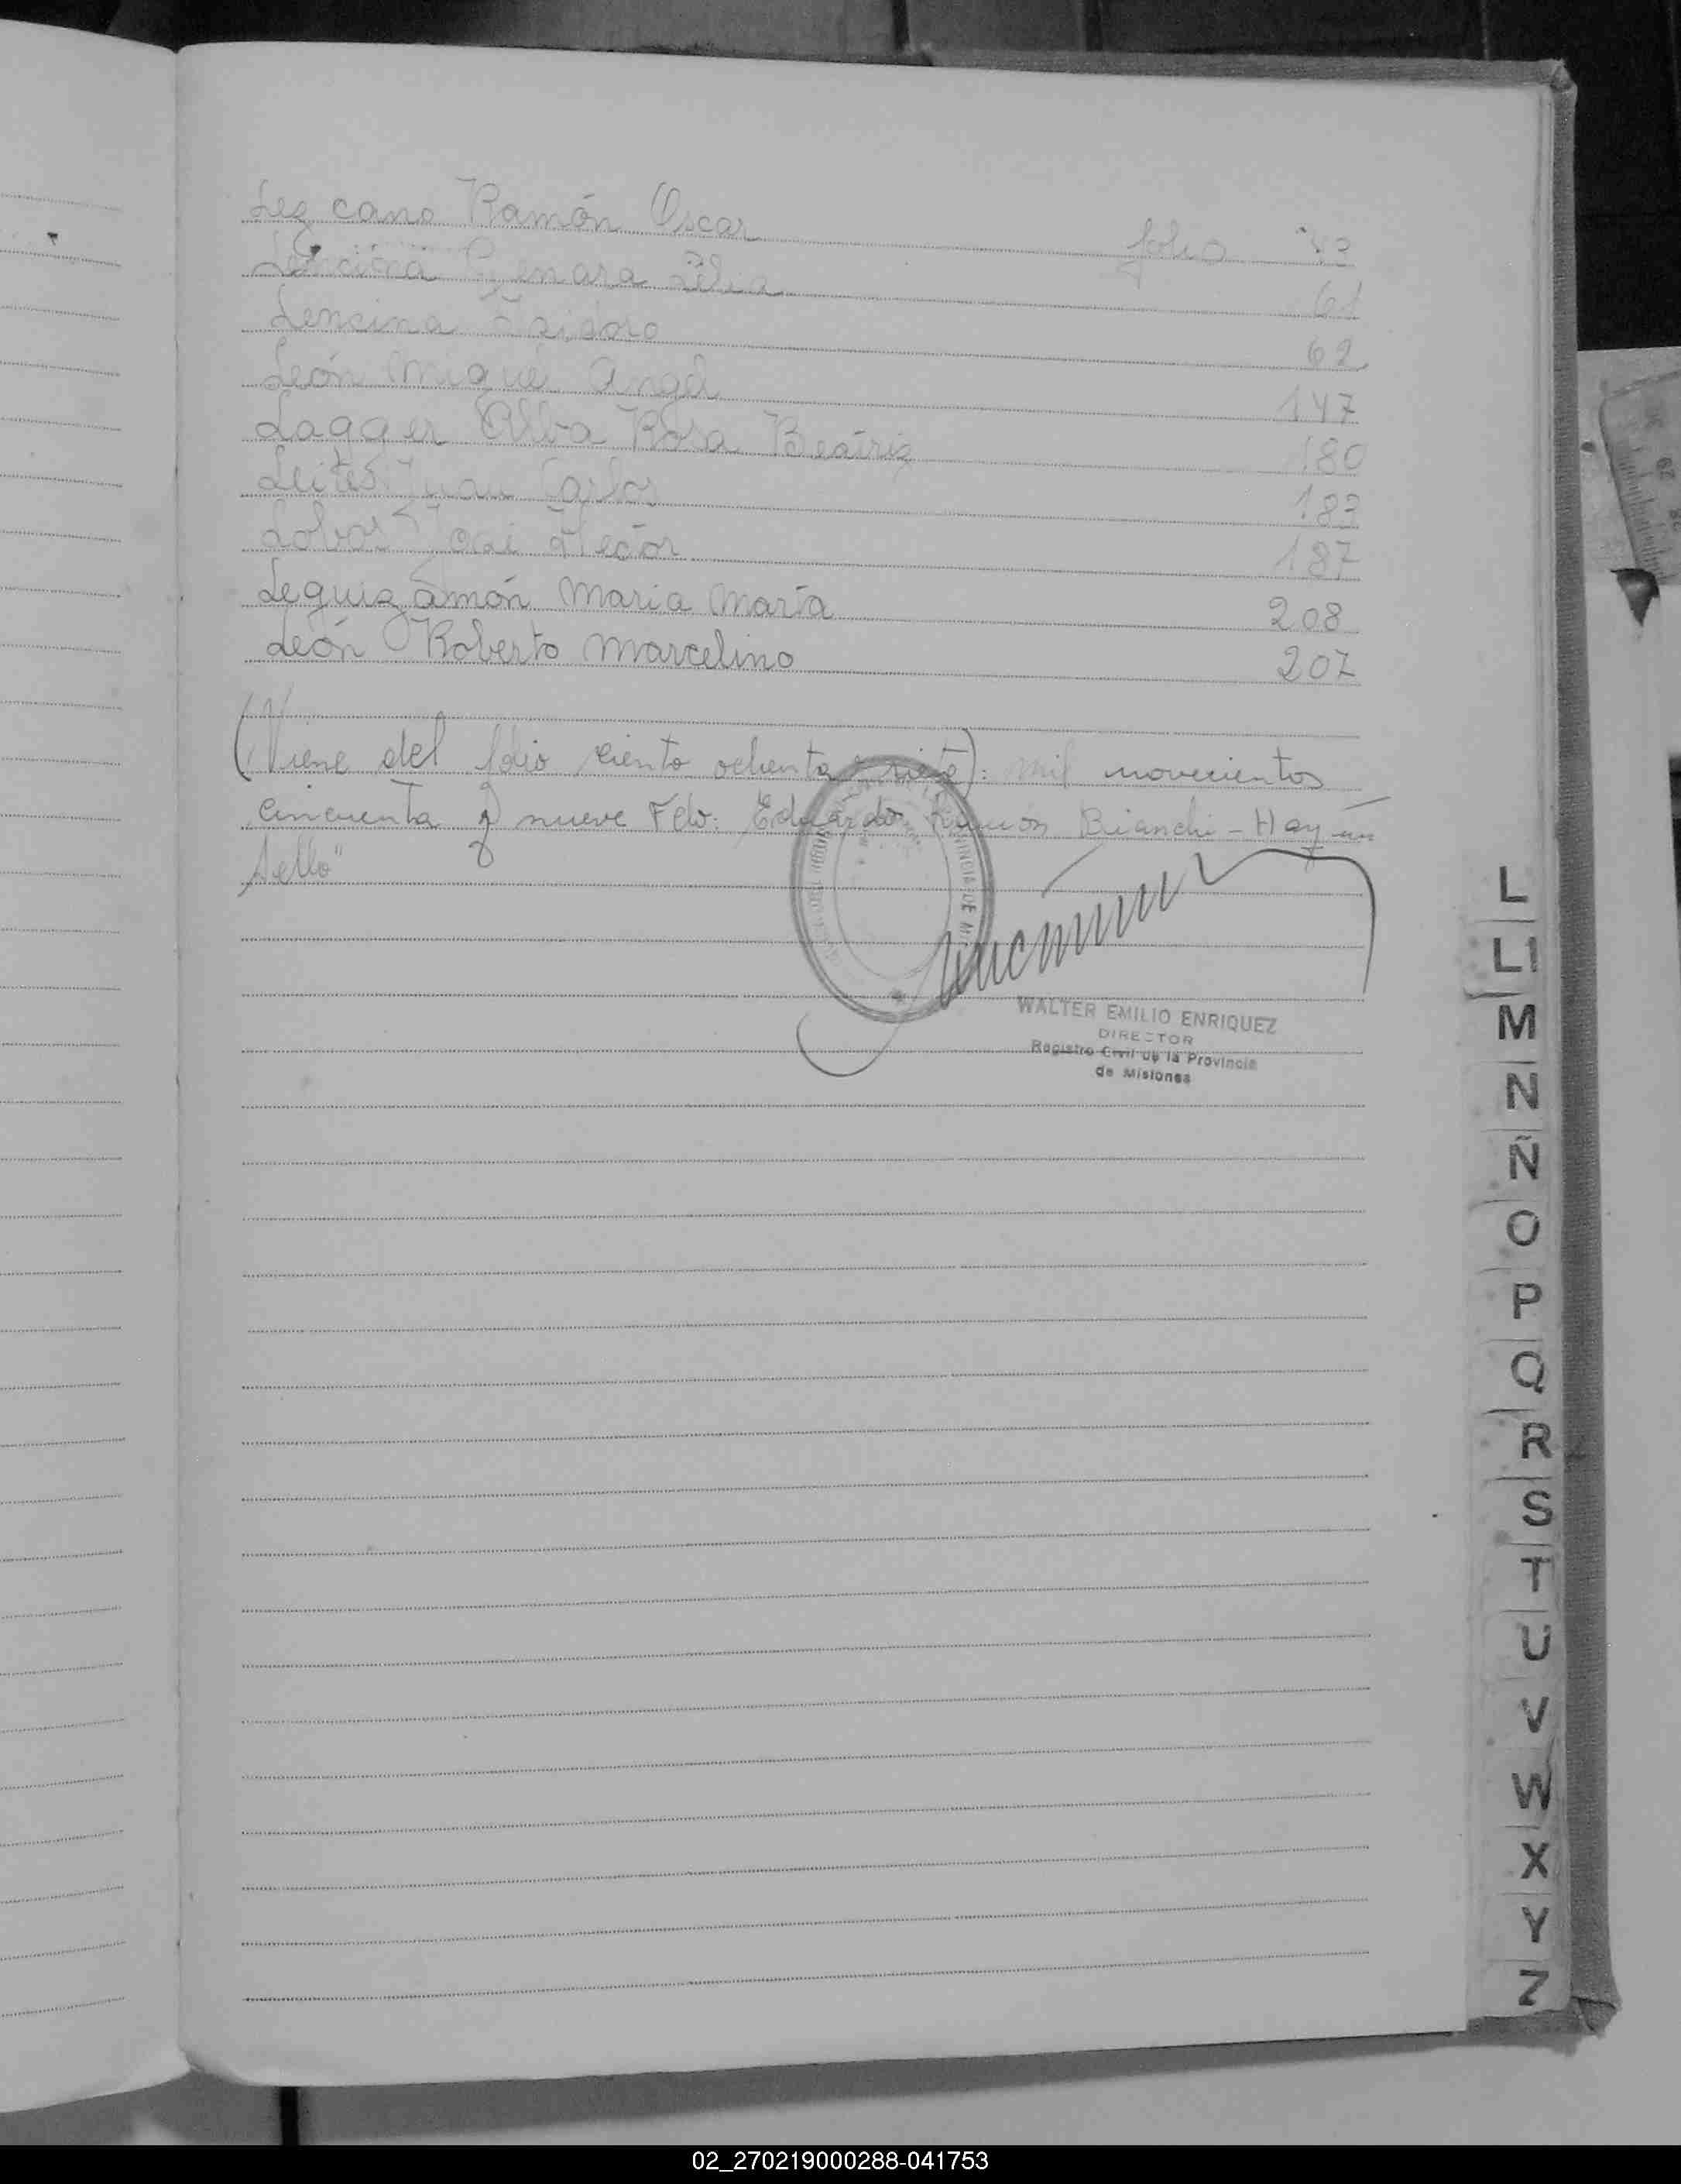 Lezcano Ramón Oscar folio
Lencina Genara Lilia 61
Lencina Isidoro 62
León Miguel Angel 147
Lagger Alba Rosa Beatriz 180
Leites Juan Carlos 183
Lobos José Hector 187
Leguizamón Maria Marta 208
León Roberto Marcelino 207
(Viene del folio ciento ochenta y siete): mil novecientos
cincuenta y nueve Fdo: Eduardo Ramón Bianchi - Hay un
sello"
PROVINCIA DE MI
WALTER EMILIO ENRIQUEZ
DIRECTOR
Registro Civil de la Provincia
de Misiones
L
Ll
M
N
Ñ
O
P
Q
R
S
T
U
V
W
X
Y
Z
02_270219000288-041753